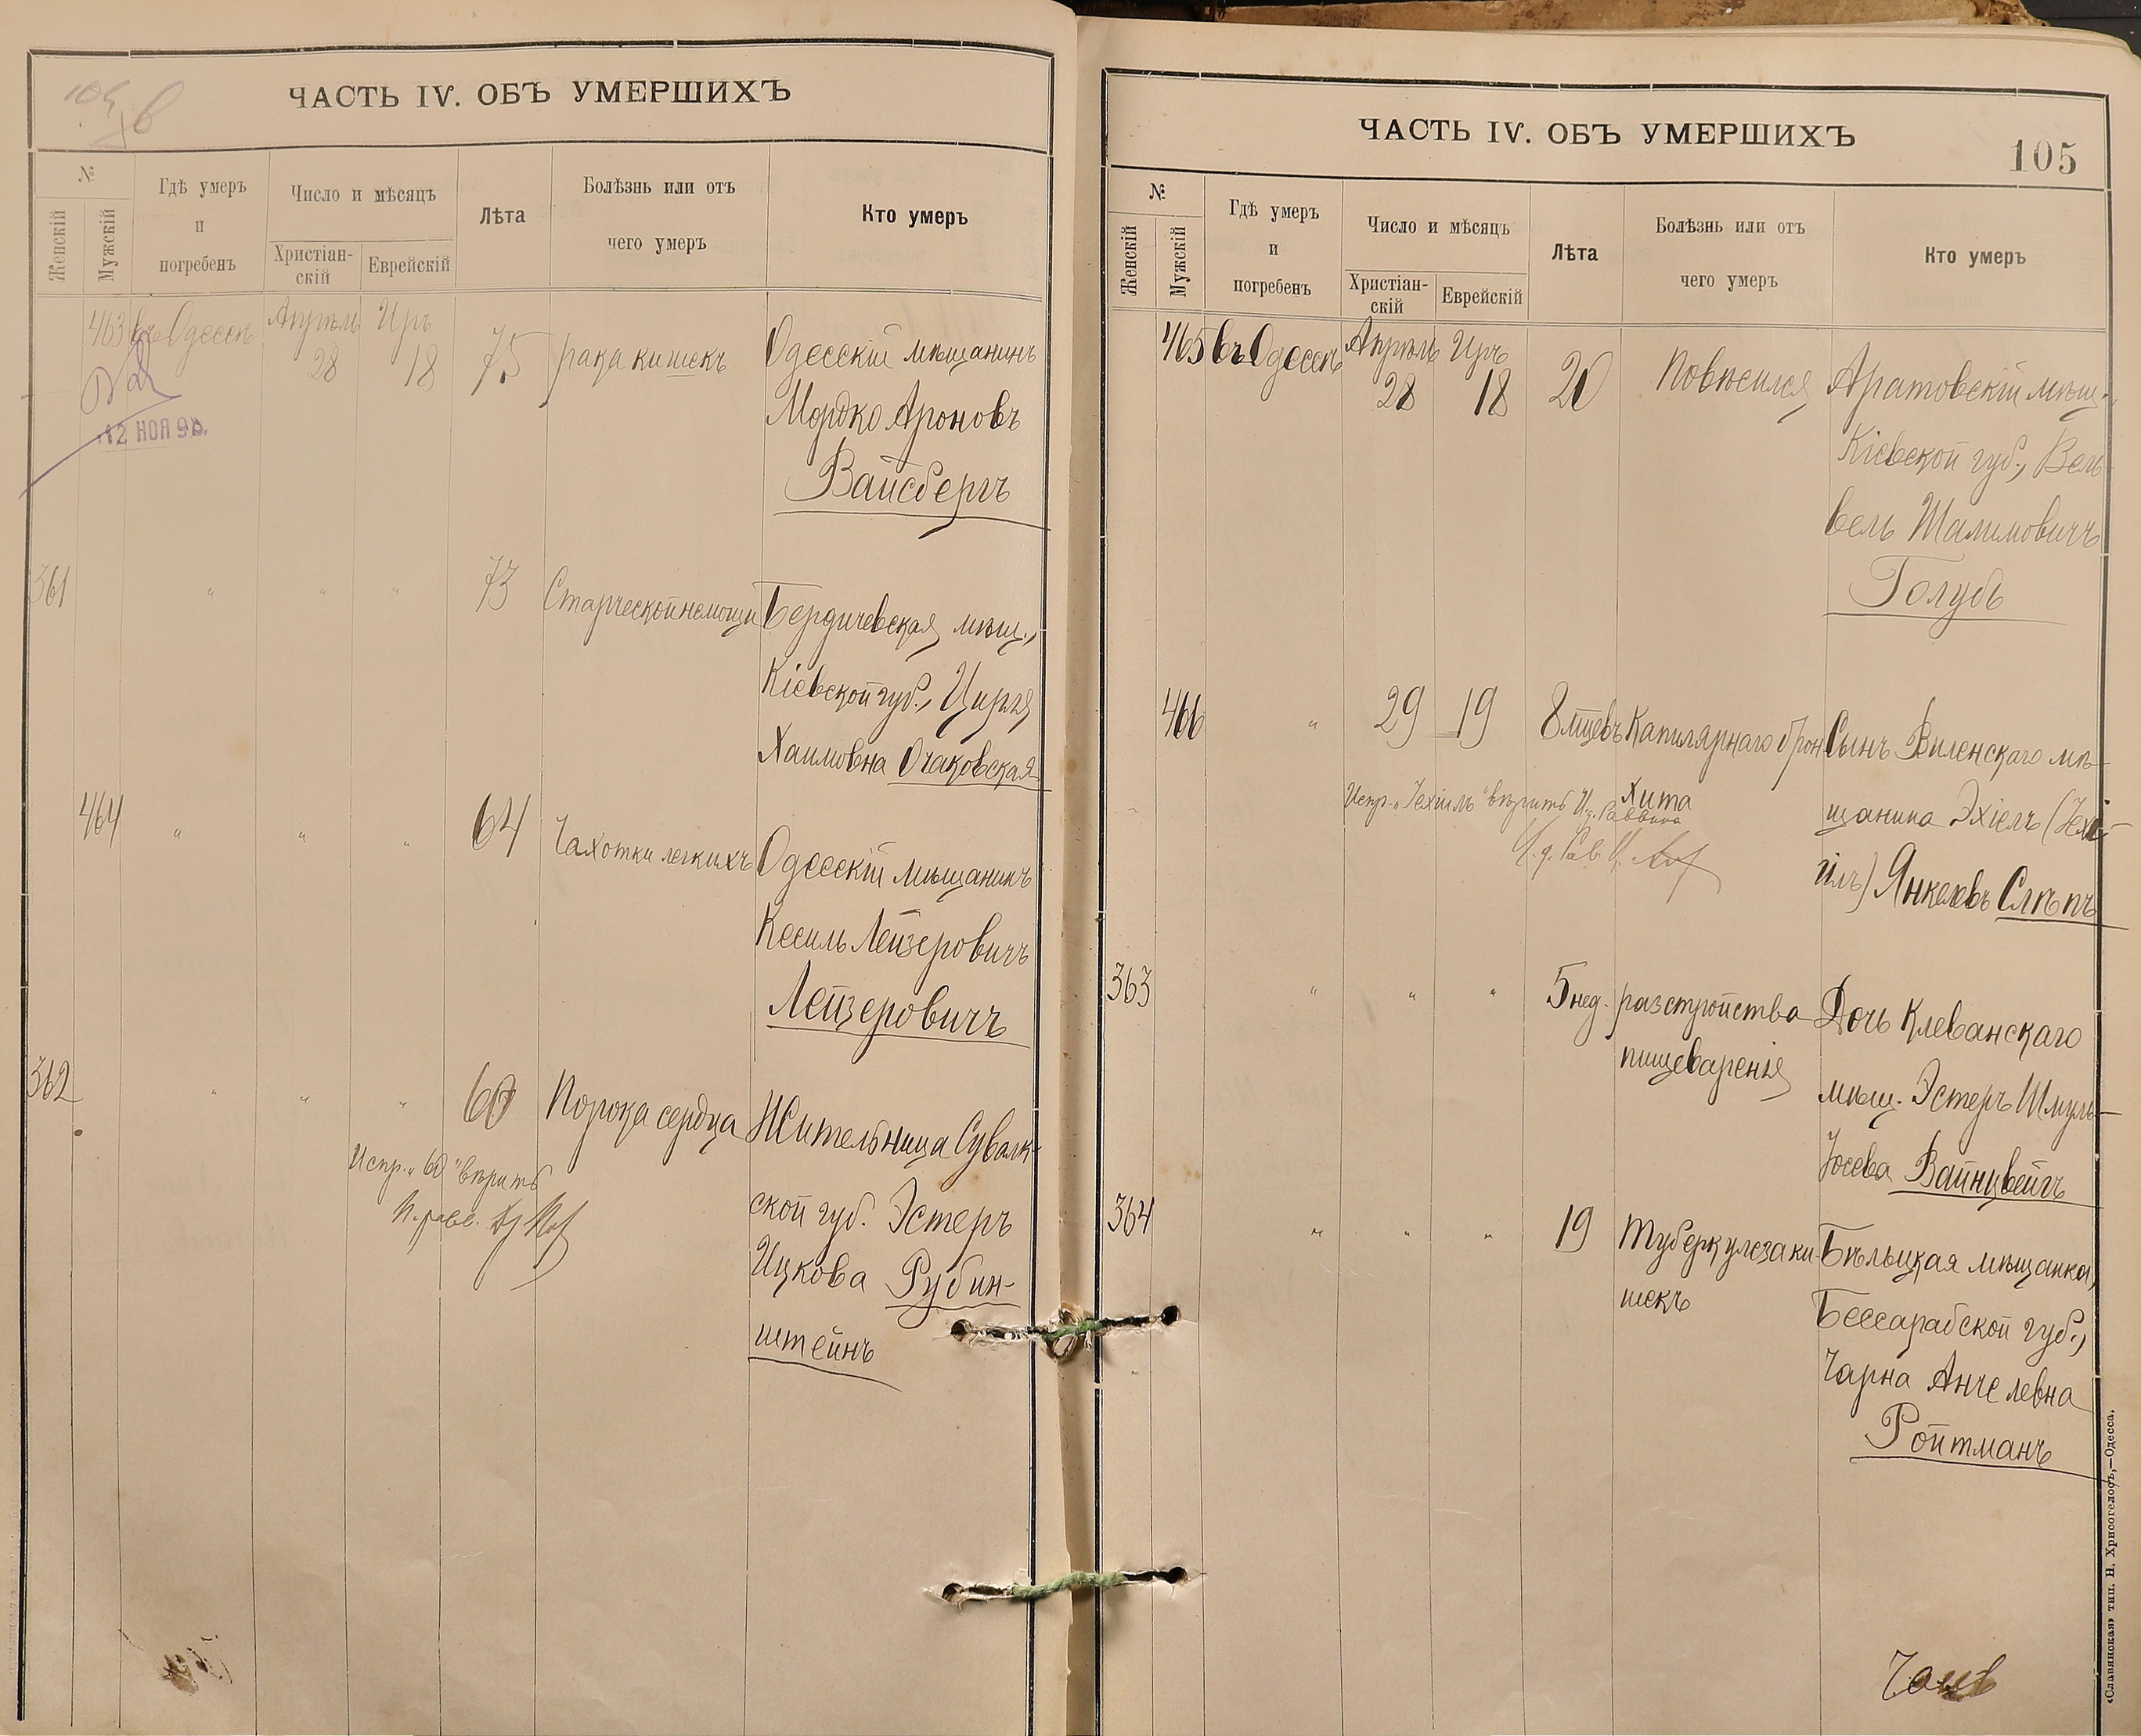 ЧАСТЬ IV. ОБЪ УМЕРШИХЪ
№
Женскій
Мужскій
Гдѣ умеръ
и
погребенъ
Число и мѣсяцъ
Христіан-
скій
Еврейскій
Лѣта
Болѣзнь или отъ
чего умеръ
Кто умеръ
463 въ Одессѣ Апрѣль Иръ
28 18 75 рака кишекъ Одесскій мѣщанинъ
12 НОЯ 98
Мордко Ароновъ
Вайсбергъ
361 " " " 73 Старческой немощи Бердичевская мѣщ.,
Кіевской губ., Цирля
Хаимовна Очаковская
464 " " " 64 Чахотки легкихъ Одесскій мѣщанинъ
Кесиль Лейзеровичъ
Лейзеровичъ
362 " " " 60 Порока сердца Жительница Сувалк-
Испр. „60" вѣрить
ской губ. Эстеръ
Ицкова Рубин-
штейнъ
ЧАСТЬ IV. ОБЪ УМЕРШИХЪ
105
№
Женскій
Мужскій
Гдѣ умеръ
и
погребенъ
Число и мѣсяцъ
Христіан-
скій
Еврейскій
Лѣта
Болѣзнь или отъ
чего умеръ
Кто умеръ
465 въ Одессѣ Апрѣль Иръ
28 18 20 Повѣсился Аратовскій мѣщ.,
Кіевской губ., Вель-
вель Шалимовичъ
Голубъ
466 " 29 19 8 мѣцевъ Капилярнаго брон Сынъ Виленскаго мѣ-
хита
Испр. „Іехіилъ" вѣрить И. д. Раввина
щанина Эхіелъ (Іехі-
илъ) Янкелевъ Слѣпъ
363 " " " 5 нед. разстройства Дочь Клеванскаго
пищеваренія
мѣщ. Эстеръ Шмуль-
Іосева Вайнцвейгъ
364 " " " 19 Туберкулеза ки- Бѣльцкая мѣщанка,
шекъ
Бессарабской губ.,
Чарна Анчелевна
Ройтманъ
«Славянская» тип. Н. Хрисогелосъ,—Одесса.